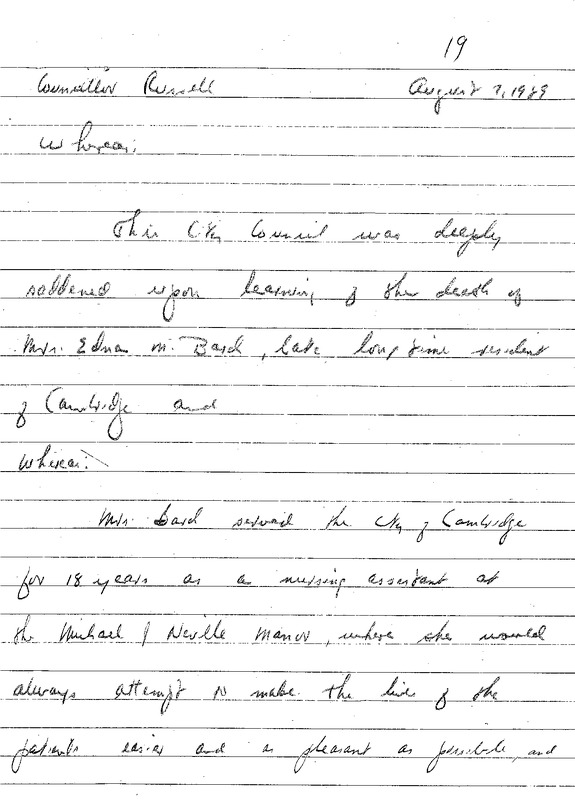 19
Councillor Russell August 7, 1989
Whereas:
This City Council was deeply
saddened upon learning of the death of
Mrs. Edna M. Bard, late long time resident
of Cambridge and
Whereas:
Mrs. Bard served the City of Cambridge
for 18 years as a nursing assistant at
the Michael J Neville Manor, where she would
always attempt to make the lives of the
patients easier and as pleasant as possible, and